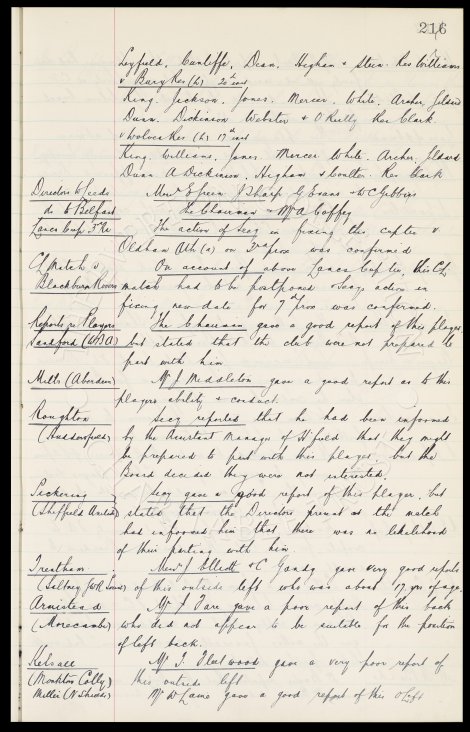 216
Leyfield, Cunliffe, Dean, Higham & Stein. Res Williams
v Bury Res (h) 20th inst
King. Jackson. Jones. Mercer. White. Archer, Gldard
Dunn. Dickinson Webster & O'Reilly Res Clark
v Wolves Res (h) 17th inst
King. Williams. Jones. Mercer White. Archer. Gldard
Dunn A Dickinson, Higham & Coulter. Res Clark
Directors to Leeds Messrs E Green J Sharp G Evans & W C Gibbins
do to Belfast The Chairman & Mr A Coffey
Lancs Cup 3rd Rd The action of Secy in fixing this cuptie v
Oldham Ath (a) on 3rd prox was confirmed
CL Match v On account of above Lancs Cup tie, this CL
Blackburn Rovers match had to be postponed & Secys action in
fixing new date for 7th prox was confirmed.
Reports re Players The Chairman gave a good report of this player
Sandford (WBA) but stated that the club were not prepared to
part with him
Mills (Aberdeen) Mr J Middleton gave a good report as to this
players ability & conduct.
Roughton Secy reported that he had been informed
(Huddersfield) by the Assistant Manager of H'field that they might
be prepared to part with this player, but the
Board decided they were not interested.
Pickering Secy gave a good report of this player, but
(Sheffield United) stated that the Directors present at the match
had informed him that there was no likelihood
of their parting with him
Trentham Messrs J Elliott & C Gandy gave very good reports
(Saltney of this outside left who was about 17 yrs of age
Armistead Mr F Tare gave a poor report of this back
(Morecambe) who did not appear to be suitable for the position
of left back.
Kelsall Mr T Fleetwood gave a very poor report of
(Monkton Colly) this outside left
Miller (N Shields) Mr D Lame gave a good report of this o left